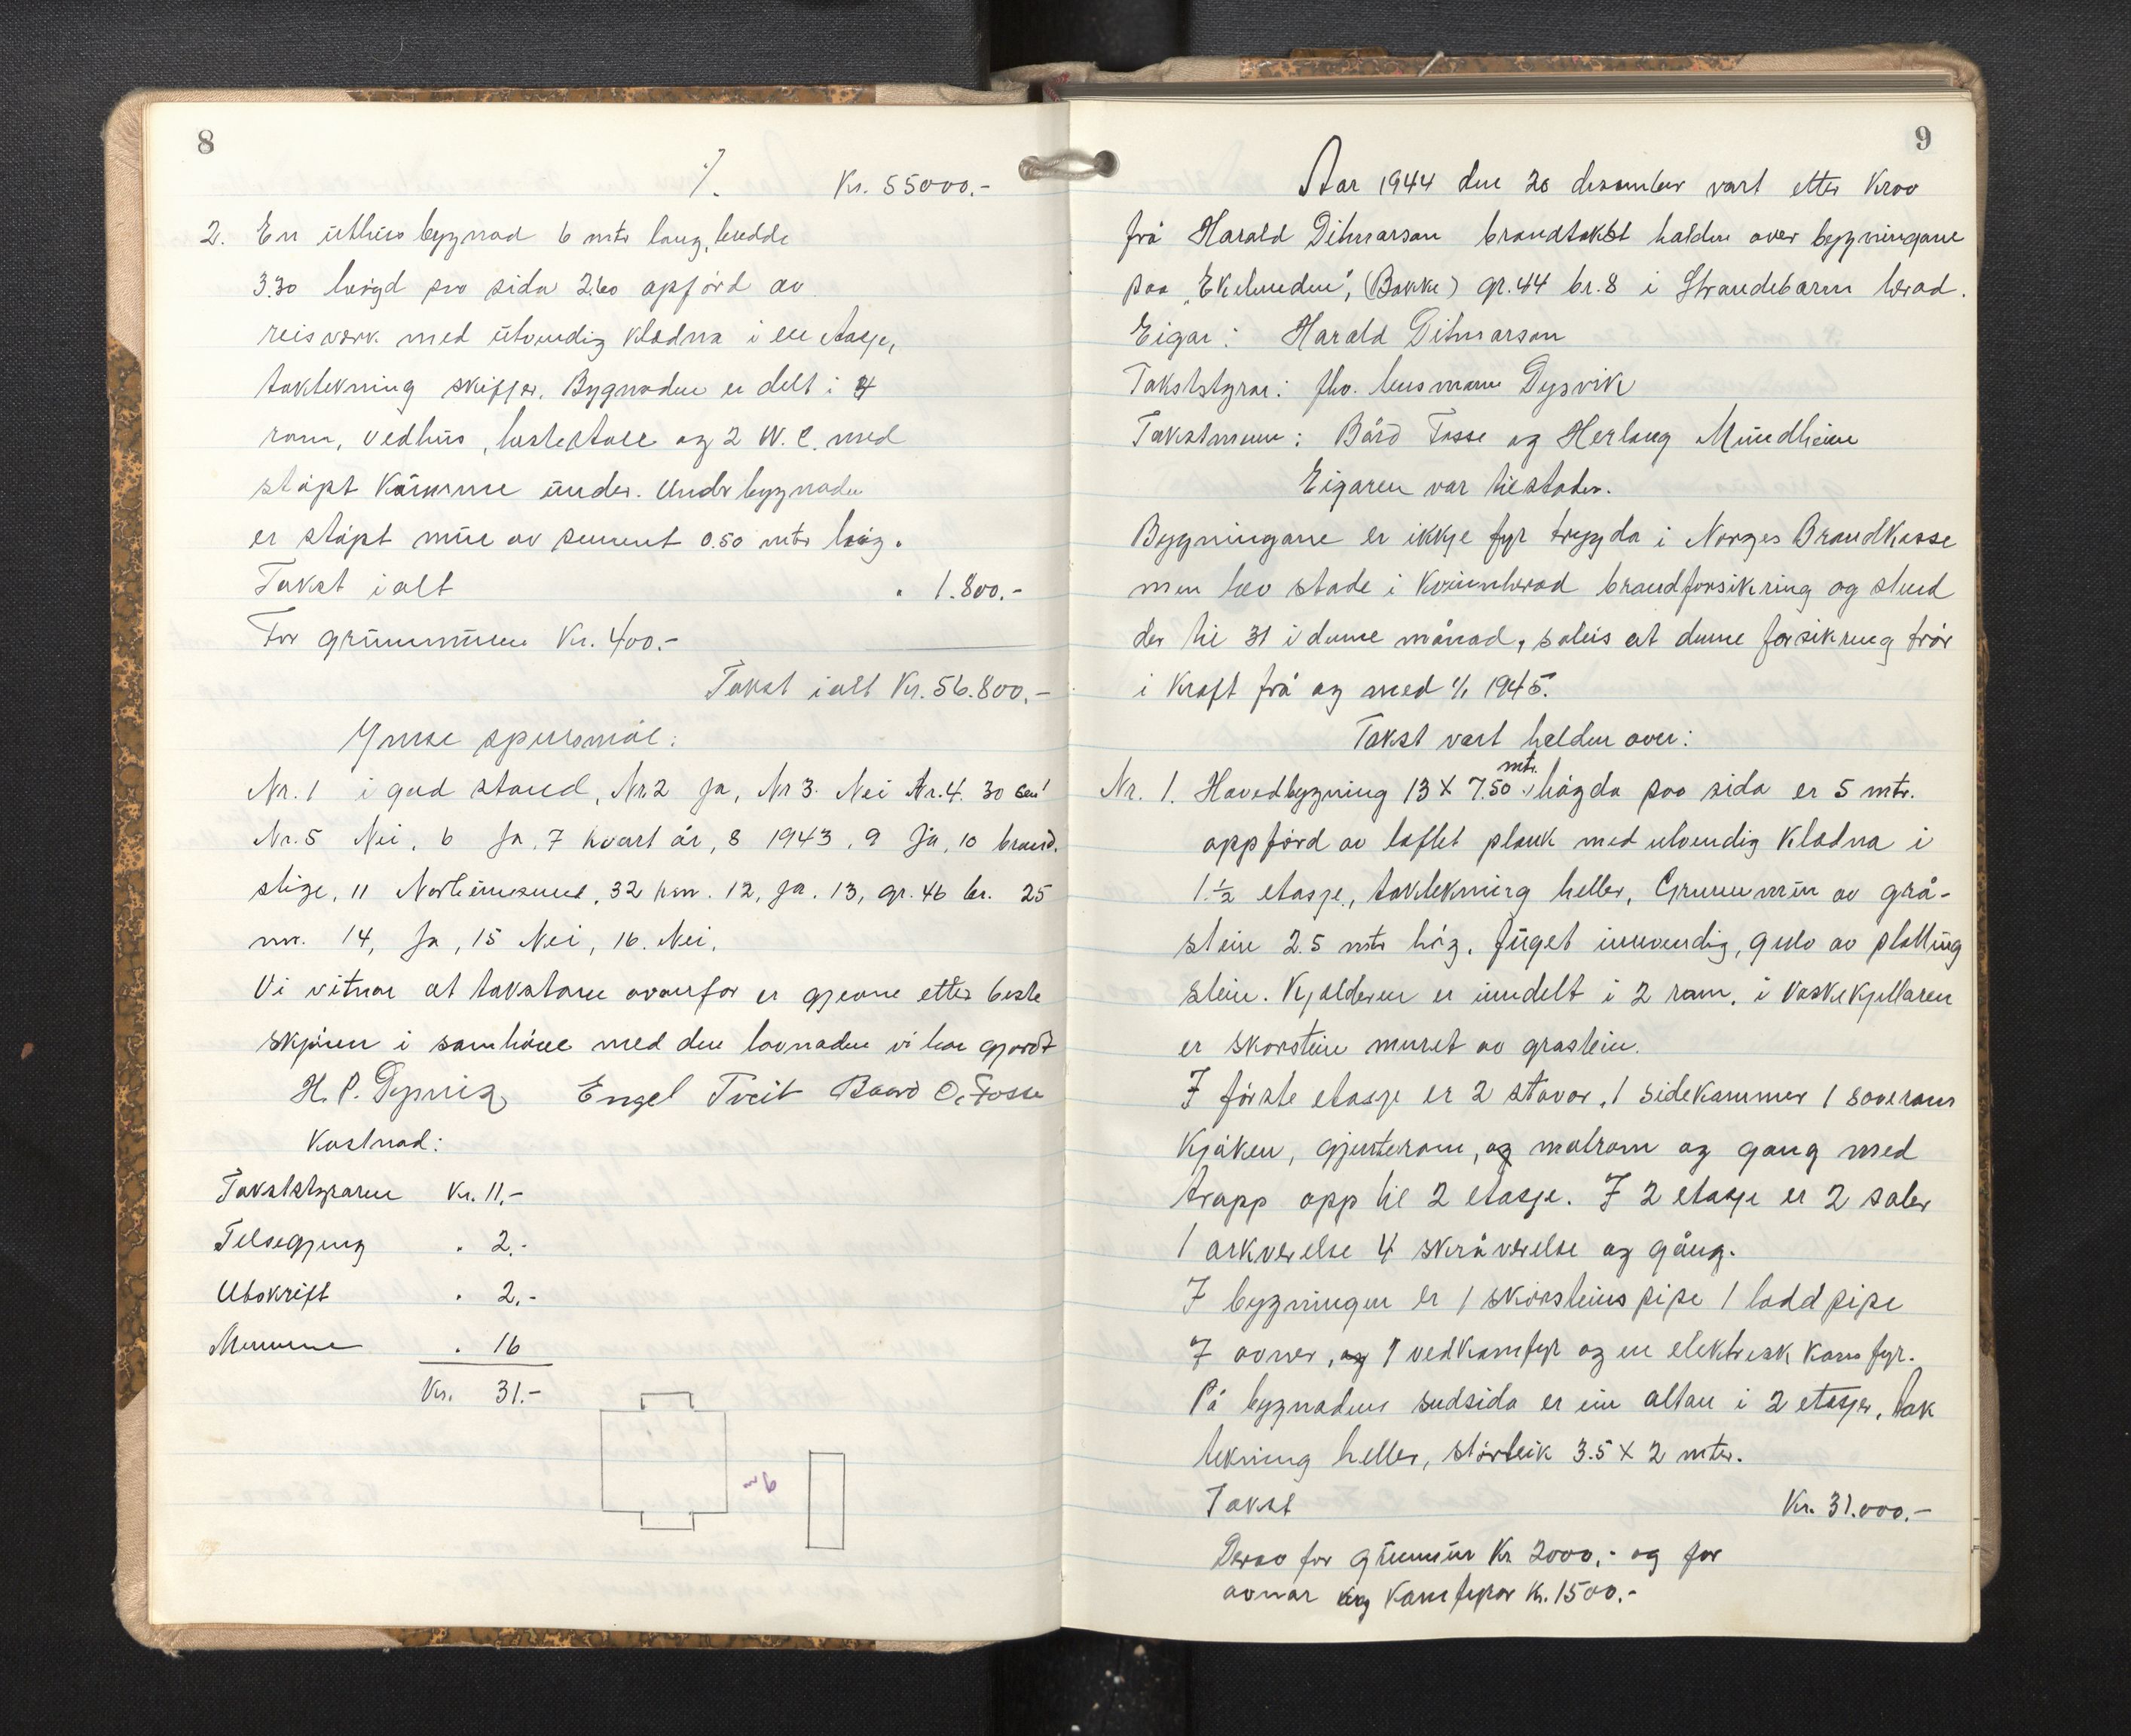 8
./. Kr. 55000.-
2. En uthus bygnad 6 mtr lang, bredde
3.30 høgd paa sida 2.60 opførd av
reisverk med utvendig kledna i en etasje,
taktekning skiffer. Bygnaden er delt i 4
rom, vedhus, hestestall og 2 W.C. med
støpt kumme under. Under bygnaden
er støpt mur av sement 0.50 mtr høg.
Takst ialt " 1.800.-
For grunnmuren Kr. 400.-
Takst ialt Kr. 56.800.-
Ymse spursmål:
Nr. 1 i god stand, Nr 2 Ja, Nr 3. Nei Nr. 4. 30 cm
Nr. 5 Nei, 6 Ja, 7 kvart år, 8 1943, 9 Ja, 10 brand.
stige, 11 Norheimsund, 32 km. 12, Ja. 13, gr. 46 br. 25
mr. 14, Ja, 15 Nei, 16. Nei.
Vi vitnar at takstane ovanfor er gjevne etter beste
skjøn i samhøve med den lovnaden vi har gjordt
H. P. Dysvik Engel Tveit Baard O. Fosse
Kostnad:
Takststyraren Kr. 11.-
Tilsegjing " 2.-
Utskrift " 2.-
Mennene " 16
Kr. 31.-
6 m
9
Aar 1944 den 20 desember vart etter krav
frå Harald Ditmarson brandtakst halden over bygningane
paa "Ekelunden", (Bakke) gr. 44 br. 8 i Strandebarm herad.
Eigar: Harald Ditmarson
Takststyrar: fhv. lensmann Dysvik
Takstmenn: Bård Fosse og Herlaug Mundheim
Eigaren var tilstades.
Bygningane er ikkje fyr trygda i Norges Brandkasse
men hev stade i Kvinnherad brandforsikring og stend
der til 31 i denne månad, soleis at denne forsikring trør
i kraft frå og med 1/1 1945.
Takst vart halden over:
Nr. 1. Hovedbygning 13 X 7.50 mtr. høgda paa sida er 5 mtr.
oppførd av loftet plank med utvendig kledna i
1 1/2 etasje, taktekning heller, Grunnmur av grå-
stein 2.5 mtr høg. fuget innvendig, gulv av platting
stein. Kjelderen er inndelt i 2 rom, i vaskekjellaren
er skorstein muret av grastein.
I første etasje er 2 stovor, 1 sidekammer 1 soverom
kjøken, gjesterom, og matrom og gang med
trapp opp til 2 etasje. I 2 etasje er 2 saler
1 arkverelse 4 skråverelse og gång.
I bygningen er 1 skorsteinspipe 1 laddpipe
7 ovner, og 1 vedkomfyr og en elektrisk komfyr.
På bygnadens sudsida er ein altan i 2 etasjer, tak
tekning heller, størleik 3.5 X 2 mtr.
Takst Kr. 31.000.-
Derav for grunnmur Kr 2000,- og for
ovnar og komfyrar Kr. 1500.-